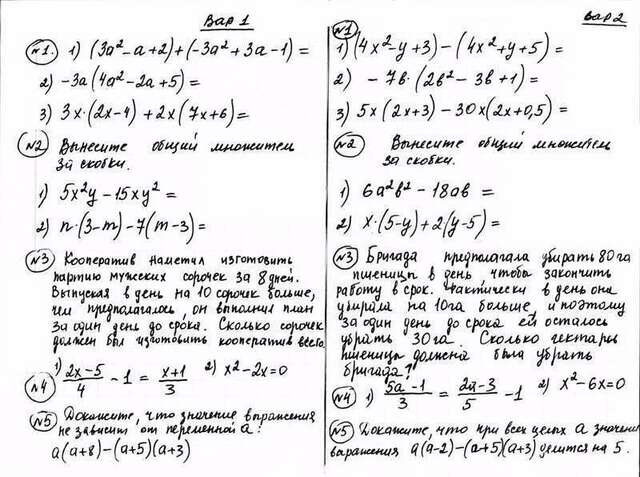 Вар 1
№1. 1) (3a²-a+2)+(-3a²+3a-1)=
2) -3a(4a²-2a+5)=
3) 3x·(2x-4)+2x(7x+6)=
№2 Вынесите общий множитель
за скобки.
1) 5x²y-15xy²=
2) n·(3-m)-7(m-3)=
№3 Кооператив наметил изготовить
партию мужских сорочек за 8 дней.
Выпуская в день на 10 сорочек больше,
чем предполагалось, он выполнил план
за один день до срока. Сколько сорочек
должен был изготовить кооператив всего.
№4 1) (2x-5)/4 - 1 = (x+1)/3 2) x²-2x=0
№5 Докажите, что значение выражения
не зависит от переменной a:
a(a+8)-(a+5)(a+3)
Вар 2
№1
1) (4x²-y+3)-(4x²+y+5)=
2) -7в·(2в²-3в+1)=
3) 5x(2x+3)-30x(2x+0,5)=
№2 Вынесите общий множител
за скобки.
1) 6a²в²-18aв =
2) x·(5-y)+2(y-5)=
№3 Бригада предполагала убирать 80 га
пшеницы в день, чтобы закончить
работу в срок. Фактически в день она
убирала на 10 га больше, и поэтому
за один день до срока ей осталось
убрать 30 га. Сколько гектаров
пшеницы должна была убрать
бригада?
№4 1) (5a-1)/3 = (2a-3)/5 - 1 2) x²-6x=0
№5 Докажите, что при всех целых a значени
выражения a(a-2)-(a+5)(a+3) делится на 5.